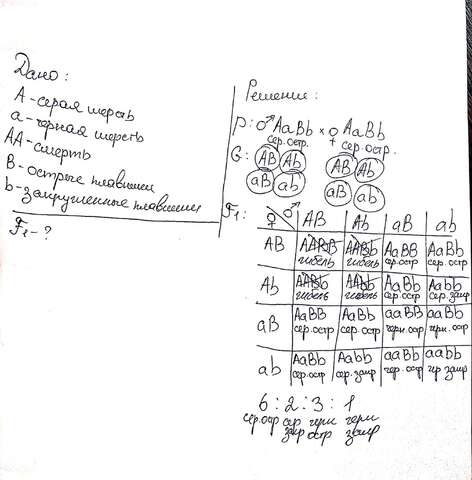 Дано:
A - серая шерсть
a - черная шерсть
AA - смерть
B - острые плавники
b - закрученные плавники
F1 - ?
Решение:
P: ♂ AaBb × ♀ AaBb
сер. остр. сер. остр.
G: AB Ab AB Ab
aB ab aB ab
F1: ♀ ♂ AB Ab aB ab
AB AABB AABb AaBB AaBb
гибель гибель сер. остр сер. остр
Ab AABb AAbb AaBb Aabb
гибель гибель сер. остр сер. закр
aB AaBB AaBb aaBB aaBb
сер. остр сер. остр черн. остр черн. остр
ab AaBb Aabb aaBb aabb
сер. остр сер. закр чер. остр чер закр
6 : 2 : 3 : 1
сер. остр сер черн черн
закр остр закр